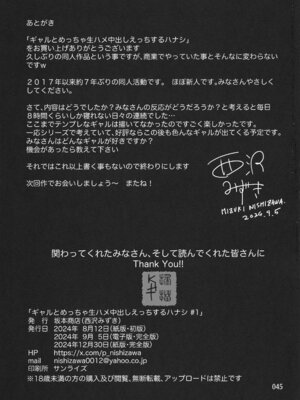 あとがき
「ギャルとめっちゃ生ハメ中出しえっちするハナシ」
をお買い上げありがとうございます
久しぶりの同人作品という事ですが、商業でやっていた事とそんなに変わらない
ですw
2017年以来約7年ぶりの同人活動です。 ほぼ新人です。みなさんやさしく
してください。
さて、内容はどうでしたか?みなさんの反応がどうだろうか?と考えると毎日
8時間くらいしか寝れない日々の連続でした…
ここまでテンプレなギャルは描いてなかったのですごく楽しかったです。
一応シリーズで考えていて、好評ならこの後も色んなギャルが出てくる予定です。
みなさんはどんなギャルが好きですか?
機会があったら教えて下さい
それではこれ以上書く事もないので終わりにします
次回作でお会いしましょう〜 またね!
西沢
みずき
MIZUKI NISHIZAWA.
2024.9.5
関わってくれたみなさん、そして読んでくれた皆さんに
Thank You!!
「ギャルとめっちゃ生ハメ中出しえっちするハナシ #1」
発行 / 坂本商店(西沢みずき)
発行日 / 2024年 8月12日(紙版・初版)
2024年 9月 5日(電子版・完全版)
2024年12月30日(紙版・完全版)
HP / https://x.com/p_nishizawa
mail / nishizawa0012@yahoo.co.jp
印刷所 / サンライズ
※18歳未満の方の購入及び閲覧、無断転載、アップロードは禁止です
045